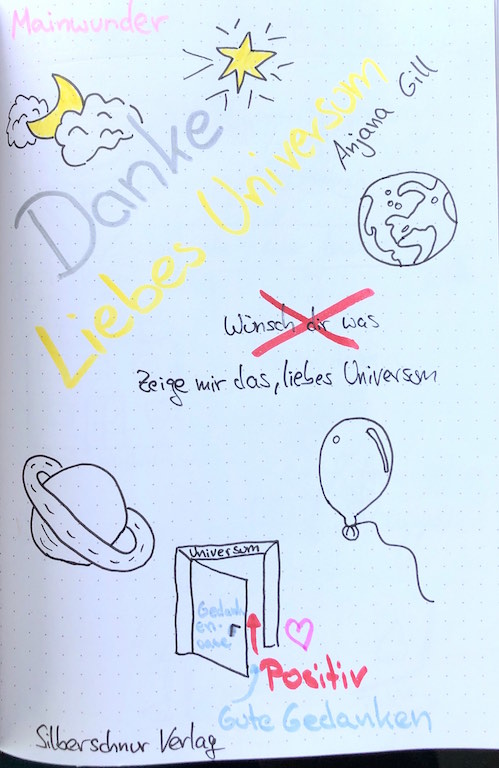 Mainwunder
Danke
Liebes Universum
Anjana Gill
Wünsch dir was
Zeige mir das, liebes Universum
Universum
Gedank
en-
Positiv
Gute Gedanken
Silberschnur Verlag